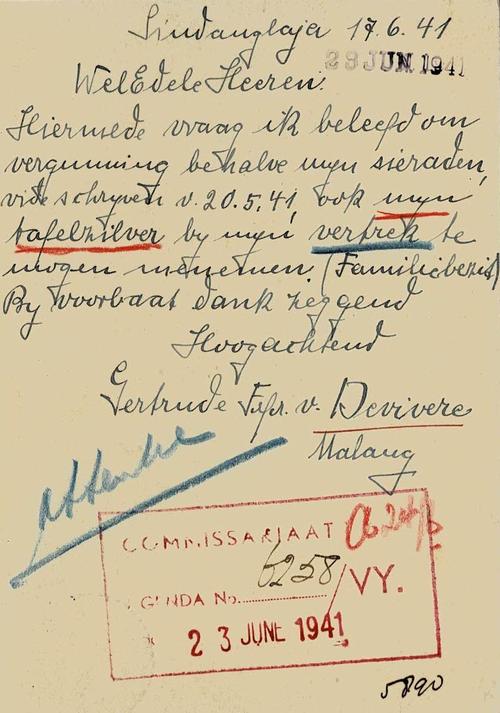 Sindanglaja 17.6.41
23 JUN 1941
WelEdele Heeren:
Hiermede vraag ik beleefd om
vergunning behalve myn sieraden,
vide schryven v. 20.5.41, ook myn
tafelzilver by myn vertrek te
mogen medenemen. (Familiebezit)
By voorbaat dank zeggend
Hoogachtend
Gertrude v. Devivere
Malang
COMMISSARIAAT
GENDA No. 6258/VY.
23 JUNE 1941
5890